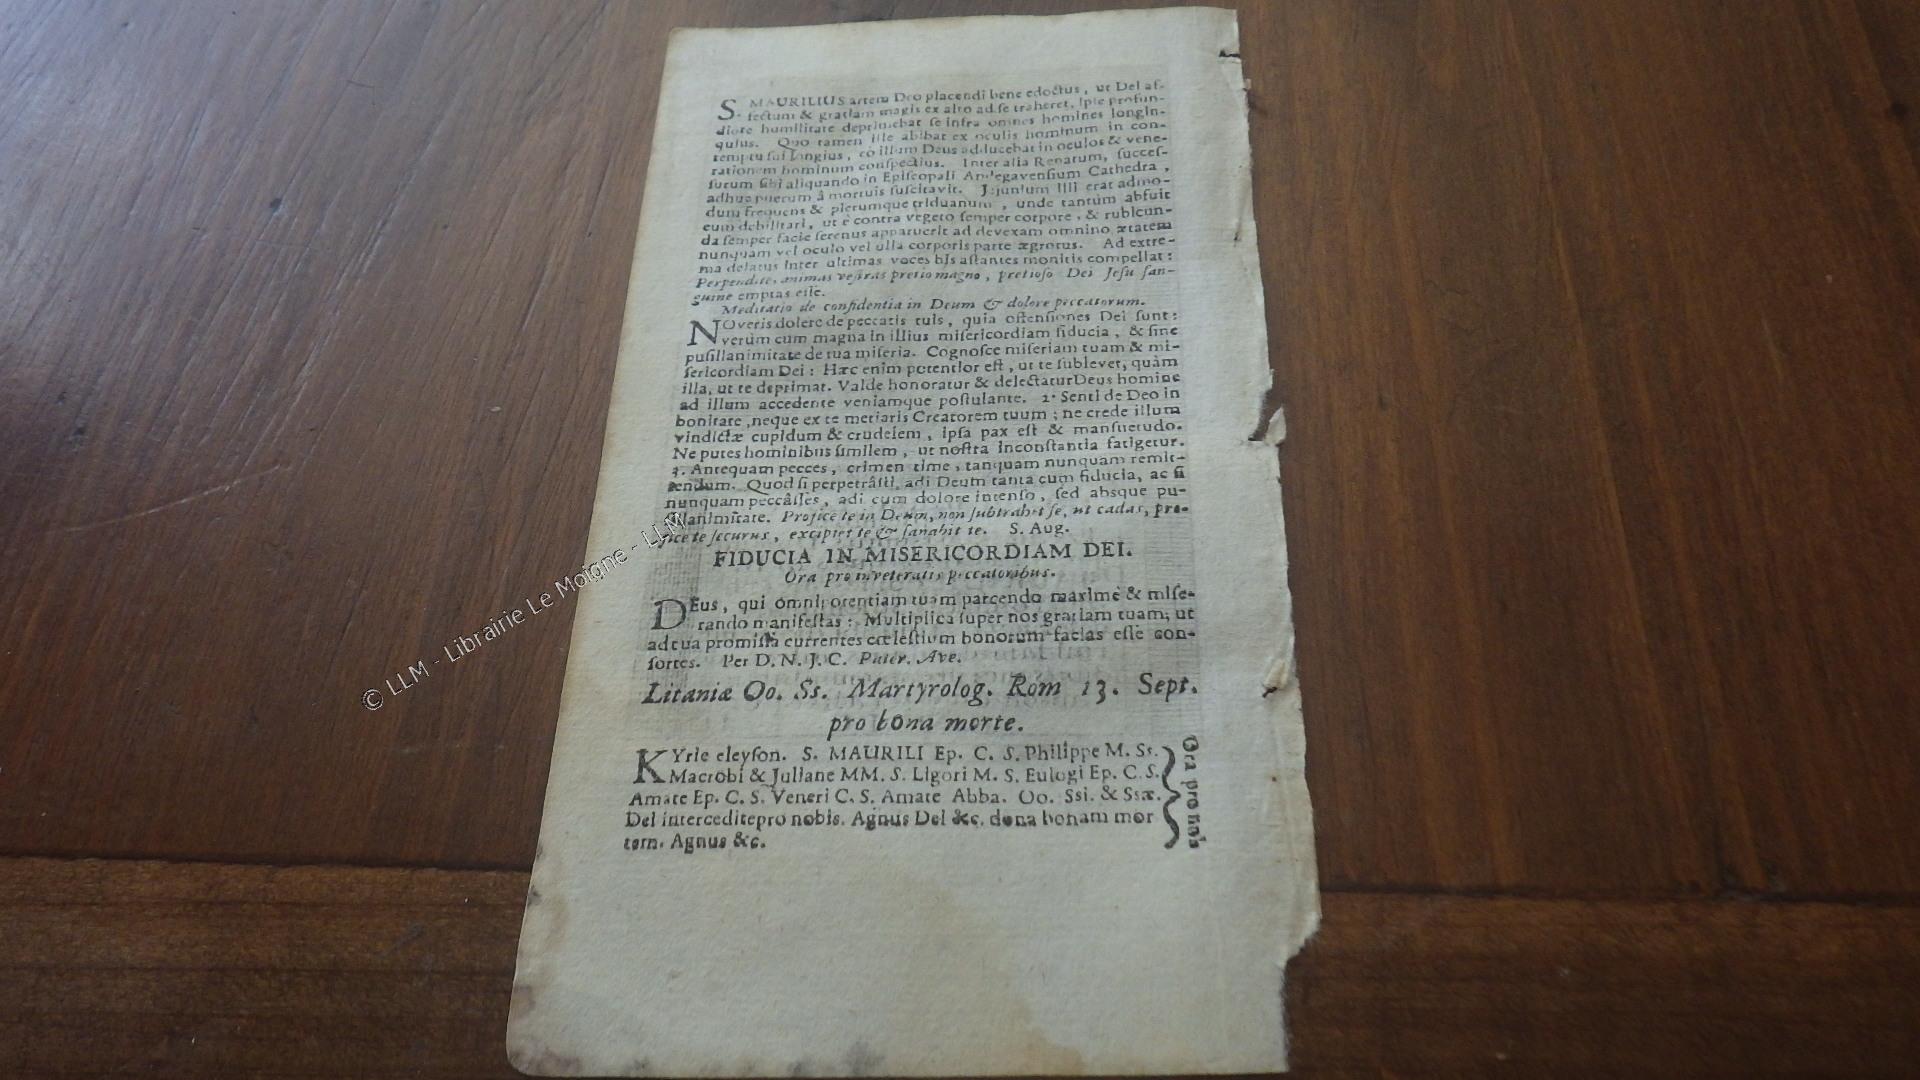 S. MAURILIUS artem Deo placendi bene edoctus, ut Dei af-
fectum & gratiam magis ex alto ad se traheret, ipse profun-
diore humilitate deprimebat se infra omnes homines longin-
quius. Quo tamen ille abibat ex oculis hominum in con-
temptu sui longius, eò illum Deus adducebat in oculos & vene-
rationem hominum conspectius. Inter alia Renatum, succes-
surum sibi aliquando in Episcopali Andegavensium Cathedra,
adhuc puerum â mortuis suscitavit. Jejunium illi erat admo-
dum frequens & plerumque triduanum, unde tantum abfuit
eum debilitari, ut è contra vegeto semper corpore, & rubicun-
da semper facie serenus apparuerit ad devexam omnino ætatem
nunquam vel oculo vel ulla corporis parte ægrotus. Ad extre-
ma delatus inter ultimas voces his astantes monitis compellat:
Perpendite, animas vestras pretio magno, pretioso Dei Jesu san-
guine emptas esse.
Meditatio de confidentia in Deum & dolore peccatorum.
NOveris dolere de peccatis tuis, quia offensiones Dei sunt:
verùm cum magna in illius misericordiam fiducia, & sine
pusillanimitate de tua miseria. Cognosce miseriam tuam & mi-
sericordiam Dei: Hæc enim potentior est, ut te sublevet, quàm
illa, ut te deprimat. Valde honoratur & delectatur Deus homine
ad illum accedente veniamque postulante. 2. Senti de Deo in
bonitate, neque ex te metiaris Creatorem tuum; ne crede illum
vindictæ cupidum & crudelem, ipsa pax est & mansuetudo.
Ne putes hominibus similem, ut nostra inconstantia fatigetur.
3. Antequam pecces, crimen time, tanquam nunquam remit-
tendum. Quod si perpetrâsti, adi Deum tanta cum fiducia, ac si
nunquam peccâsses, adi cum dolore intenso, sed absque pu-
sillanimitate. Projice te in Deum, non subtrahet se, ut cadas, pro-
jice te securus, excipiet te & sanabit te. S. Aug.
FIDUCIA IN MISERICORDIAM DEI.
Ora pro inveteratis peccatoribus.
DEus, qui omnipotentiam tuam parcendo maximè & mise-
rando manifestas: Multiplica super nos gratiam tuam; ut
ad tua promissa currentes cœlestium bonorum facias esse con-
sortes. Per D. N. J. C. Pater. Ave.
Litaniæ Oo. Ss. Martyrolog. Rom 13. Sept.
pro bona morte.
KYrie eleyson. S. MAURILI Ep. C. S. Philippe M. Ss.
Macrobi & Juliane MM. S. Ligori M. S. Eulogi Ep. C. S.
Amate Ep. C. S. Veneri C. S. Amate Abba. Oo. Ssi. & Ssæ.
Dei intercedite pro nobis. Agnus Dei &c. dona bonam mor
tem. Agnus &c.
Ora pro nobis
© LLM - Librairie Le Moigne - LLM